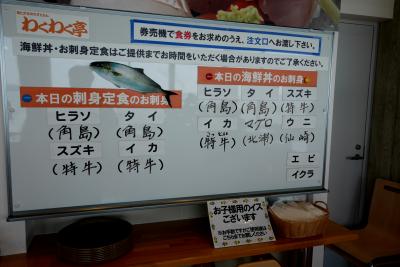 わくわく亭
券売機で食券をお求めのうえ、注文口へお渡し下さい。
海鮮丼・お刺身定食はご提供までお時間をいただく場合がありますのでご了承ください。
本日の刺身定食のお刺身
ヒラソ タイ
(角島) (角島)
スズキ イカ
(特牛) (特牛)
本日の海鮮丼のお刺身
ヒラソ タイ スズキ
(角島) (角島) (特牛)
イカ マグロ ウニ
(特牛) (北浦) (仙崎)
エビ
イクラ
お子様用のイス
ございます